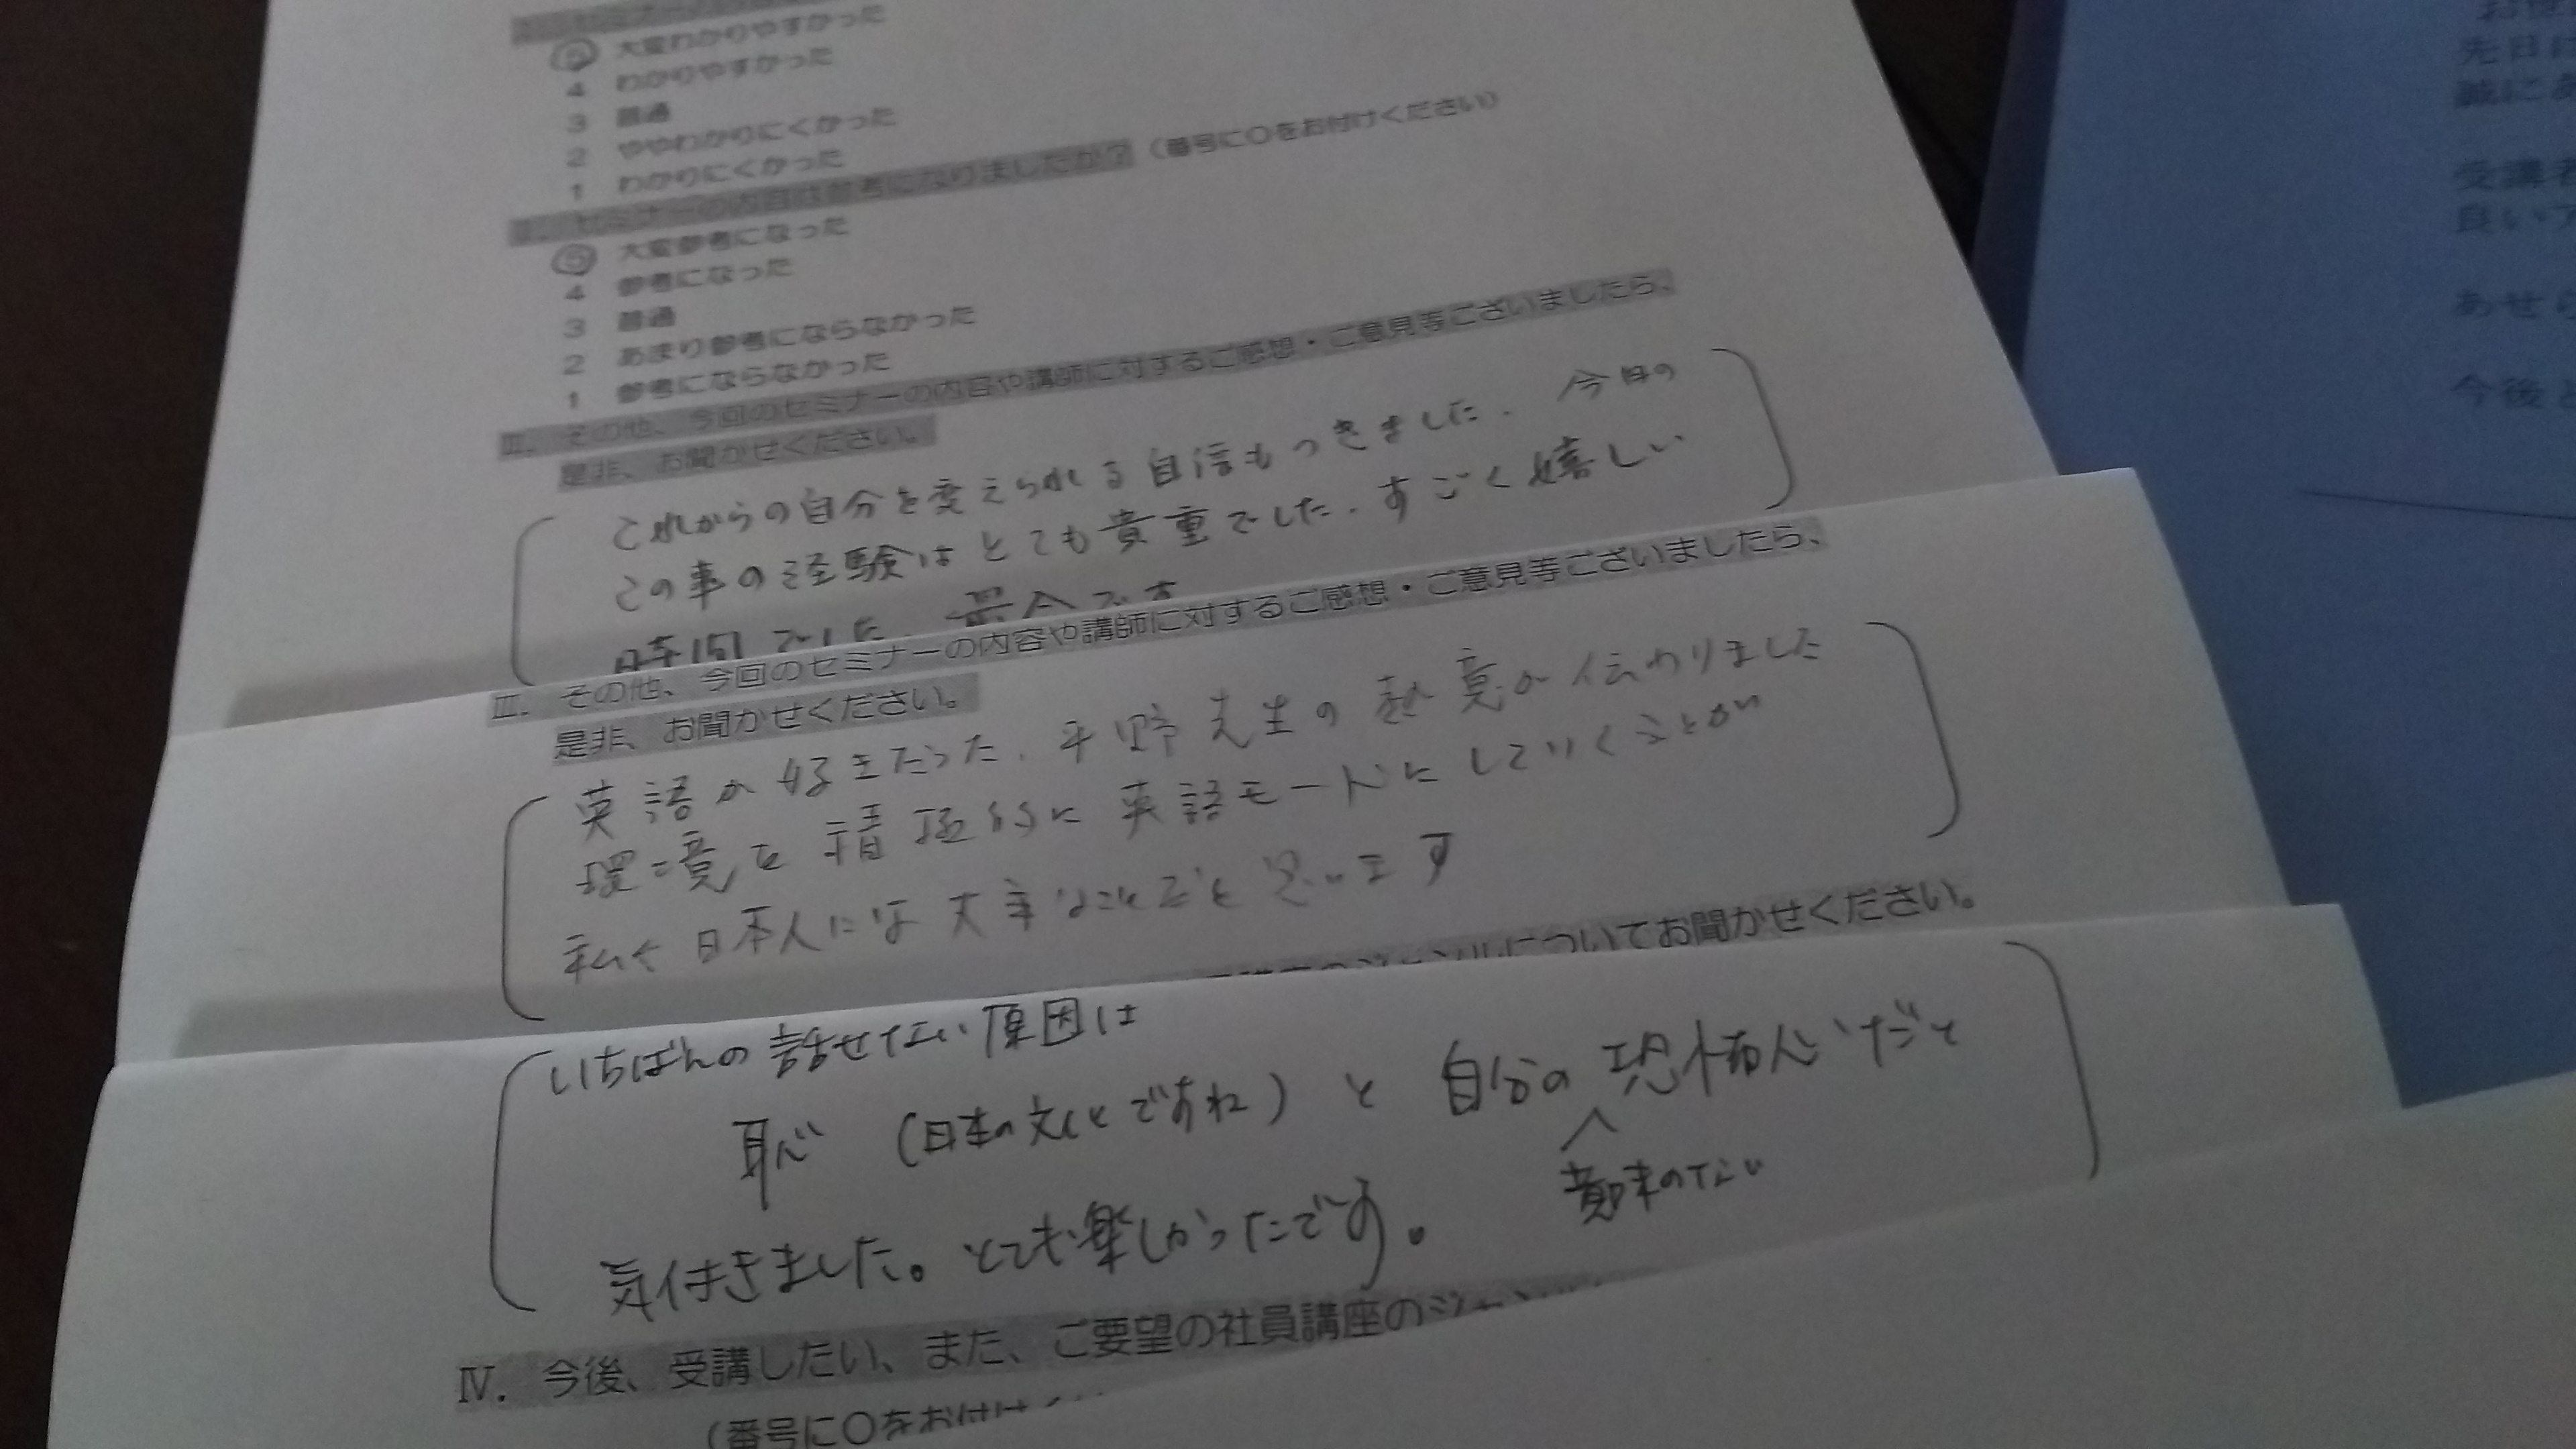 ⑤ 大変わかりやすかった
4 わかりやすかった
3 普通
2 ややわかりにくかった
1 わかりにくかった
Ⅱ. セミナーの内容は参考になりましたか？（番号に〇をお付けください）
⑤ 大変参考になった
4 参考になった
3 普通
2 あまり参考にならなかった
1 参考にならなかった
Ⅲ. その他、今回のセミナーの内容や講師に対するご感想・ご意見等ございましたら、
是非、お聞かせください。
これからの自分を変えられる自信もつきました. 今日の
この事の経験はとても貴重でした. すごく嬉しい
時間でした. 最合です
Ⅲ. その他、今回のセミナーの内容や講師に対するご感想・ご意見等ございましたら、
是非、お聞かせください。
英語が好きだった. 平野先生の熱意が伝わりました
環境を積極的に英語モードにしていくことが
私く日本人には大事なことだと思います
についてお聞かせください。
いちばんの話せない原因は
恥（日本の文化ですね）と 自分の恐怖心だと
意味のない
気付きました。とても楽しかったです。
Ⅳ. 今後、受講したい、また、ご要望の社員講座の
（番号に〇をお付け
先日は
誠にあ
受講者
良いア
あせら
今後と